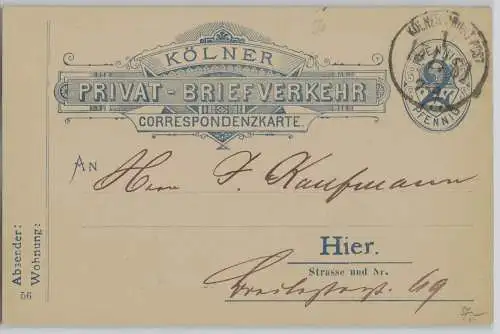 KÖLNER
PRIVAT-BRIEFVERKEHR
CORRESPONDENZKARTE.
2
PFENNIG
AN
Herrn F. Kaufmann
Hier.
Strasse und Nr.
Breitestrasse 69
Absender:
Wohnung:
56